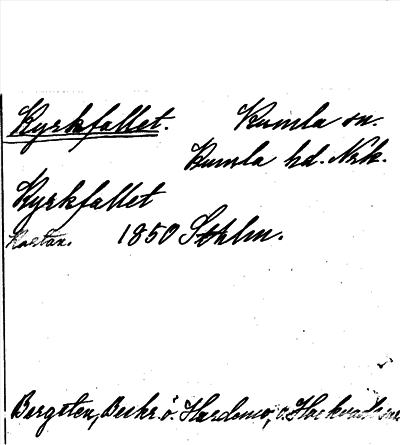 Kyrkfallet. Kumla sn.
Kumla hd. Nrk.
Kyrkfallet
Kartan. 1850 Sthlm.
Bergsten, Beskr. ö. Hardemo, o.